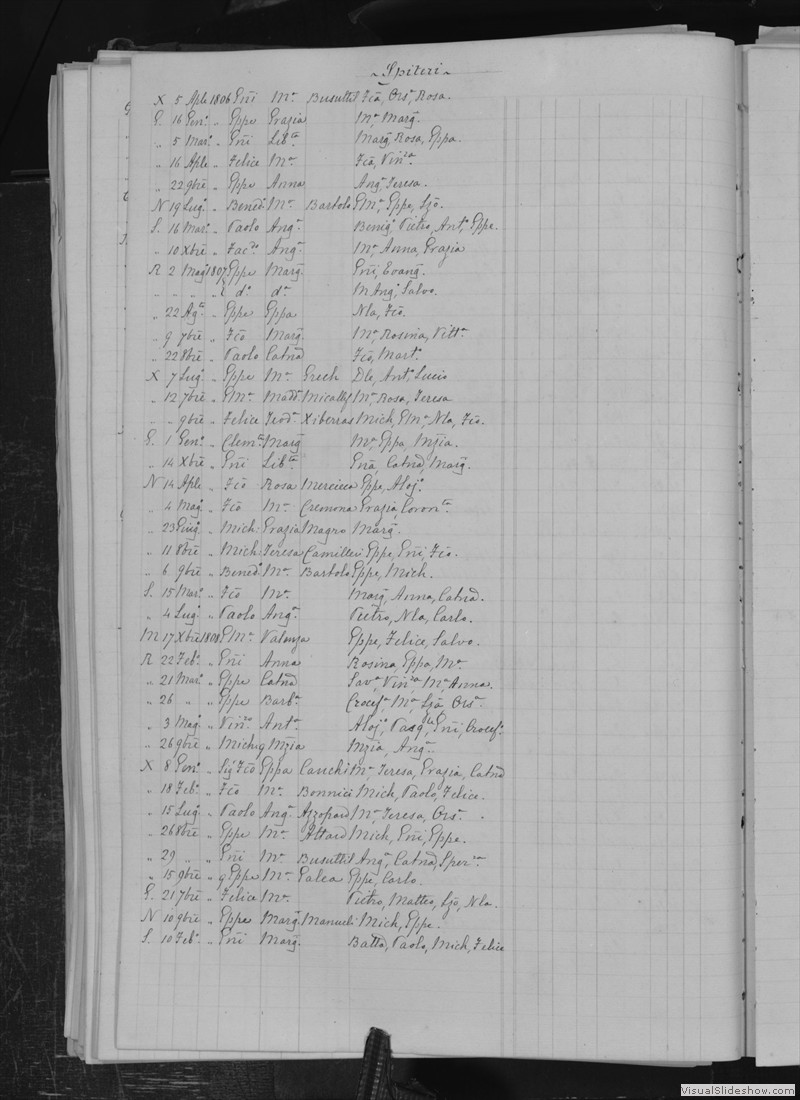 Spiteri
X 5 Aple 1806 Enri Ma Busuttil Fco, Orsa, Rosa.
G. 16 Geno „ Eppe Grazia Ma, Marg.
„ 5 Maro „ Enri Liba Marg, Rosa, Eppa.
„ 16 Aple „ Felice Ma Fco, Vinza
„ 22 9bre „ Eppe Anna Anga, Teresa.
N 19 Lugo „ Benedo Ma Bartolo EMa, Eppe, Ljo.
S. 16 Maro „ Paolo Anga Benigo, Pietro, Anto, Eppe.
„ 10 Xbre „ Zaco Anga Ma, Anna, Grazia
R 2 Mago 1807 Eppe Marg. Enri, Evang.
„ „ „ „ do da M Anga, Salvo.
„ 22 Agto „ Eppe Eppa Nla, Fco.
„ 9 7bre „ Fco Marg. Ma, Rosina, Vitta
„ 22 8bre „ Paolo Catna Fco, Marta
X 7 Lugo „ Eppe Ma Grech Dle, Anto, Lucio
„ 12 7bre „ EMa Madda Micallef Ma, Rosa, Teresa
„ „ 9bre „ Felice Teoda Xiberras Mich, EMa, Nla, Fco.
G. 1 Geno „ Clemte Marg Ma, Eppa, Mzia.
„ 14 Xbre „ Enri Liba Ena, Catna, Marg.
N 14 Aple „ Fco Rosa Mercieca Eppe, Alojo
„ 4 Mago „ Fco Ma Cremona Grazia, Coronta
„ 23 Giugo „ Mich: Grazia Magro Marg.
„ 11 8bre „ Mich: Teresa Camilleri Eppe, Enri, Fco.
„ 6 9bre „ Benedo Ma Bartolo Eppe, Mich.
S. 15 Maro „ Fco Ma Marg, Anna, Catna.
„ 4 Lugo „ Paolo Anga Pietro, Nla, Carlo.
M 17 Xbre 1808 EMa Valenza Eppe, Felice, Salvo.
R 22 Febo „ Enri Anna Rosina, Eppa, Ma
„ 21 Maro „ Eppe Catna Sava, Vinza, Ma Anna.
„ 26 „ „ Eppe Barba Crocefa, Ma, Ljo, Orsa
„ 3 Mago „ Vinzo Anta Alojo, Pasqle, Enri, Crocefa
„ 26 9bre „ Mich Mzia Mzia, Anga
X 8 Geno „ Sig Fco Eppa Cauchi Ma, Teresa, Grazia, Catna
„ 18 Febo „ Fco Ma Bonnici Mich, Paolo, Felice.
„ 15 Lugo „ Paolo Anga Azzopard Ma, Teresa, Orsa
„ 26 8bre „ Eppe Ma Attard Mich, Enri, Eppe.
„ 29 „ „ Enri Ma Busuttil Anga, Catna, Sperza
„ 15 9bre „ q Eppe Ma Galea Eppe, Carlo.
G. 21 7bre „ Felice Ma Pietro, Matteo, Ljo, Nla.
N 10 9bre „ Eppe Marg. Manueli Mich, Eppe.
S. 10 Febo „ Enri Marg. Batta, Paolo, Mich, Felice
VisualSlideshow.com